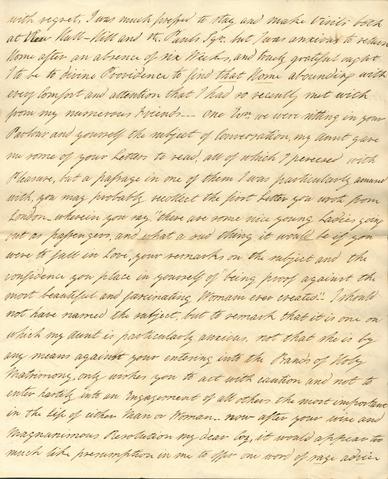 with regret, I was much pressed to stay and make visits both
at New Hall-Hill and St. Pauls Sqr. but I was anxious to return
Home after an absence of six Weeks, and truly grateful ought
I to be to divine Providence to find that Home abounding with
every comfort and attention that I had so recently met with
from my numerous Friends — One Eve, we were sitting in your
Parlour and yourself the subject of Conversation, my Aunt gave
me some of your Letters to read, all of which I perused with
Pleasure, but a passage in one of them I was particularly amused
with, you may probably recollect the first letter you wrote from
London wherein you say "there are some nice young Ladies going
out as passengers, and what a sad thing it would be if you
were to fall in Love, your remarks on the subject and the
confidence you place in yourself of being proof against the
most beautiful and fascinating Woman ever created". I should
not have named the subject, but to remark that it is one on
which my Aunt is particularly anxious, not that she is by
any means against your entering into the Bands of Holy
Matrimony, only wishes you to act with caution and not to
enter hastily into an Engagement of all others the most important
in the life of either Man or Woman — now after your wise and
Magnanimous Resolution my dear Coz, it would appear too
much like presumption in me to offer one word of sage advice